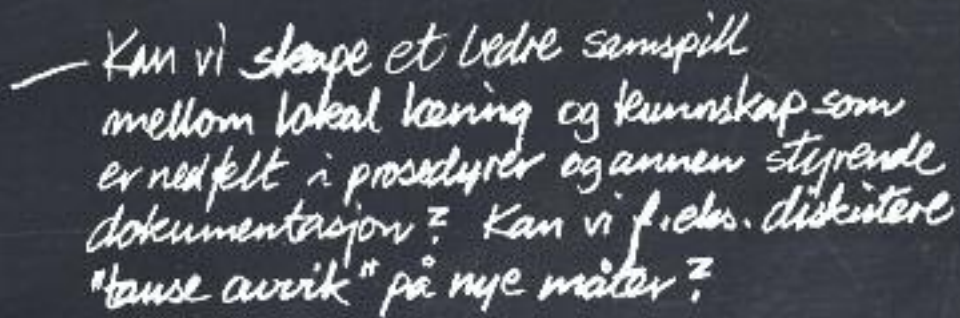 – Kan vi skape et bedre samspill
mellom lokal læring og kunnskap som
er nedfelt i prosedyrer og annen styrende
dokumentasjon? Kan vi f.eks. diskutere
"tause avvik" på nye måter?